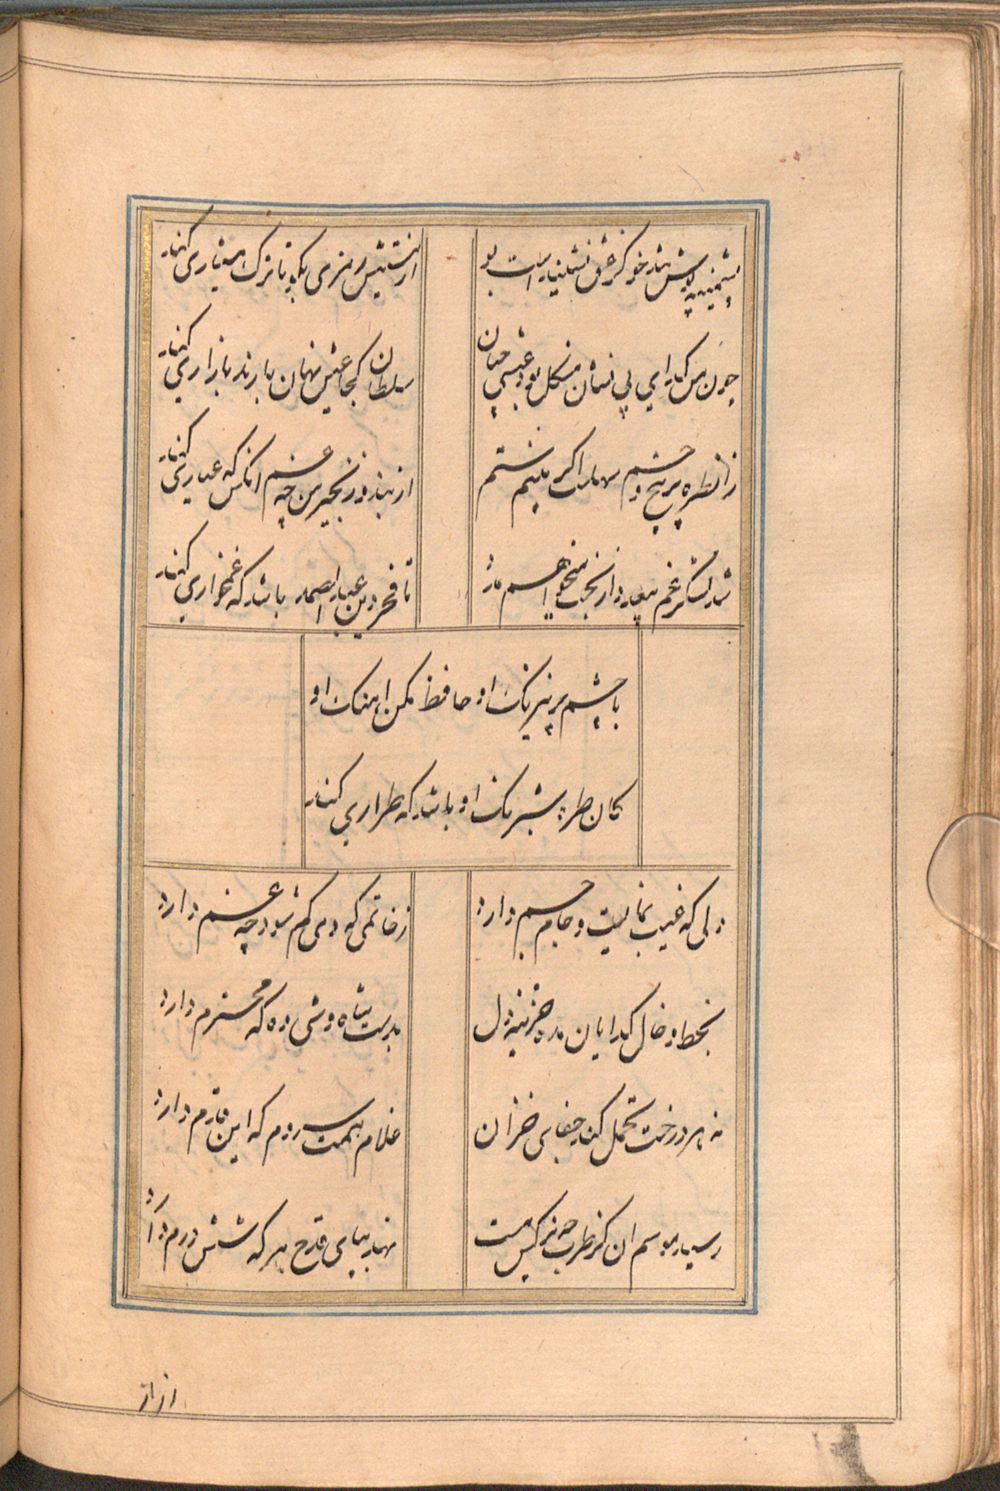 پشمینه پوش تندخو کز عشق نشنیده است بو
از مستیش رمزی بگو تا ترک هشیاری کند
چون من گدای بی نشان مشکل بود عیشی چنان
سلطان کجا عیش نهان با رند بازاری کند
زان طره پر پیچ و خم سهلست اگر بینم ستم
از بند و زنجیرش چه غم انکس که عیاری کند
شد لشکر غم بی عدد از بخت میخواهم مدد
تا فخر دین عبد الصمد باشد که غمخواری کند
با چشم پر نیرنک او حافظ مکن اهنک او
کان طره شبرنک او باشد که طراری کند
دلی که غیب نمایست و جام جم دارد
ز خاتمی که دمی کم شود چه غم دارد
بخط و خال کدایان مده خزینه دل
بدست شاه وشی ده که محترم دارد
نه هر درخت تحمل کند جفای خزان
غلام همت سروم که این قدم دارد
رسید موسم ان کز طرب چو نرکس مست
نهد بپای قدح هر که شش درم دارد
از راز